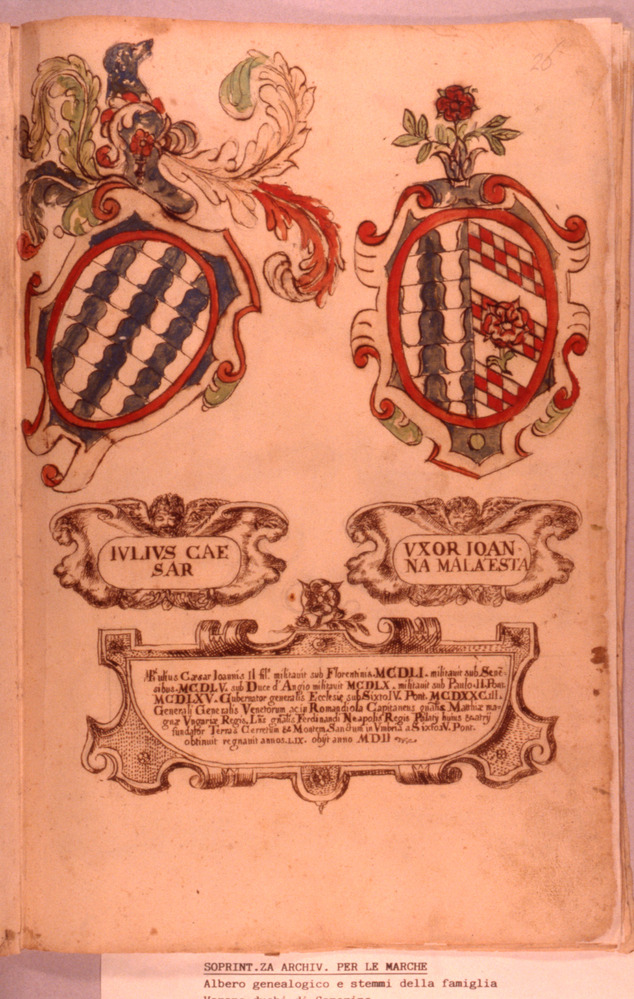 26
IVLIVS CAE
SAR
VXOR IOAN-
NA MALATESTA
Iulius Cæsar Ioannis II fil. militauit sub Florentinis MCDLI. militauit sub Senē
sibus MCDLV. sub Duce d Angio militauit MCDLX. militauit sub Paulo II Pont.
MCDLXV. Gubernator generalis Ecclesiæ sub Sixto IV. Pont. MCDXXCIII.
Generali Generalis Venetorum ac in Romandiola Capitaneus gnalis Matthiæ ma-
gnæ Vngariæ Regis. gnalis Ferdinandi Neapolis Regis Palaty huius
fundator Terras Cerretum & Montem Sanctum in Vmbria a Sixto IV. Pont.
obtinuit regnauit annos LIX. obijt anno MDII
SOPRINT.ZA ARCHIV. PER LE MARCHE
Albero genealogico e stemmi della famiglia
Varano duchi di Camerino